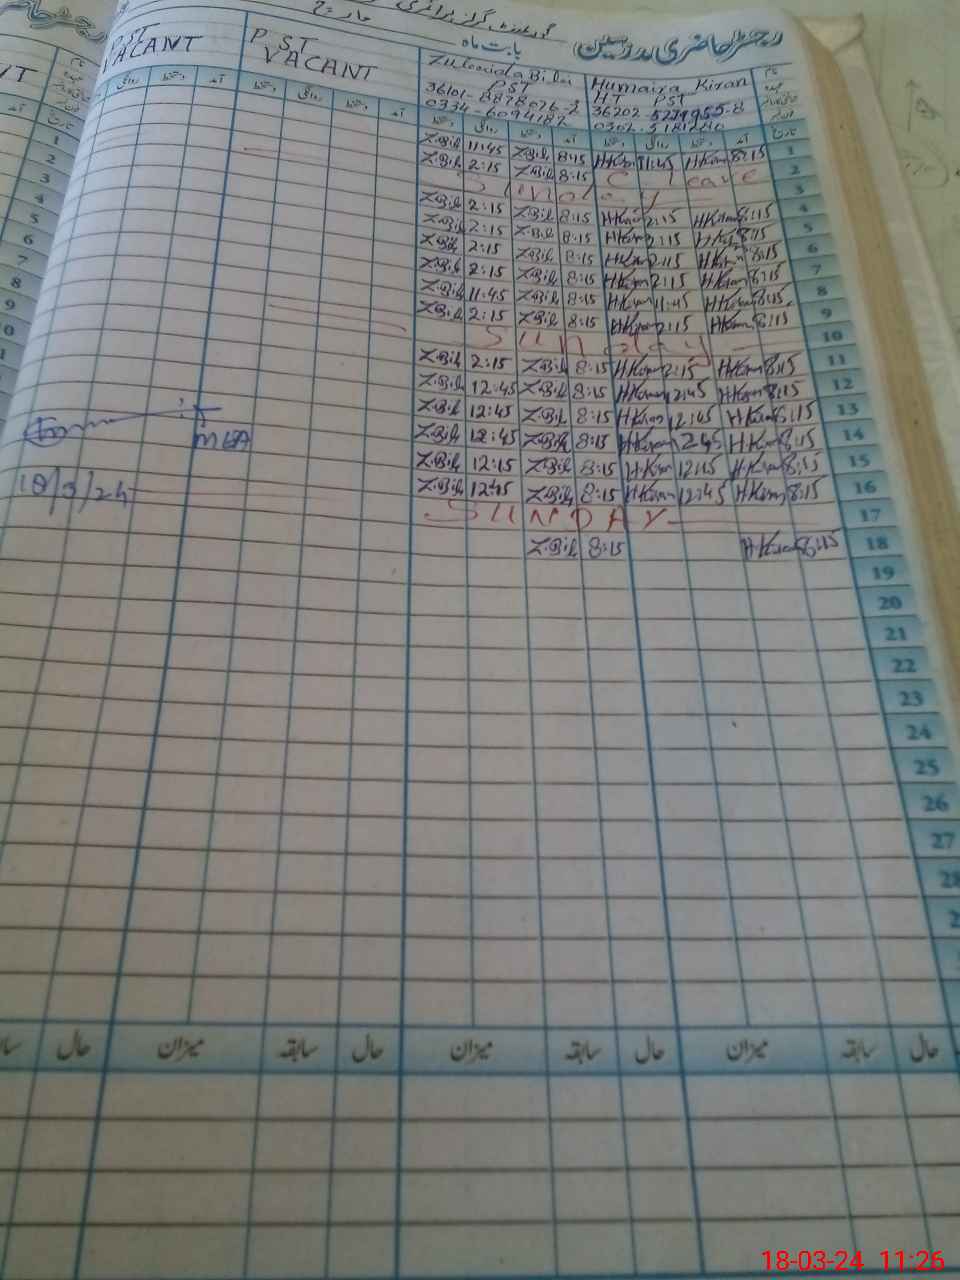 رجسٹر حاضری مدرسین
بابت ماہ
مارچ
گورنمنٹ گرلز پرائمری
PST VACANT
PST VACANT
Bibi PST
36101-8878076-2
0334-6094187
Humaira Kiran
HT PST
36202-5279955-8
1 Z.Bibi 11:45 Z.Bibi 8:15 H.Kiran 11:45 H.Kiran 8:15 1
2 Z.Bibi 2:15 Z.Bibi 8:15 C Leave 2
3 Sunday 3
4 Z.Bibi 2:15 Z.Bibi 8:15 H.Kiran 2:15 H.Kiran 8:15 4
5 Z.Bibi 2:15 Z.Bibi 8:15 H.Kiran 2:15 H.Kiran 8:15 5
6 Z.Bibi 2:15 Z.Bibi 8:15 H.Kiran 2:15 H.Kiran 8:15 6
7 Z.Bibi 2:15 Z.Bibi 8:15 H.Kiran 2:15 H.Kiran 8:15 7
8 Z.Bibi 11:45 Z.Bibi 8:15 H.Kiran 11:45 H.Kiran 8:15 8
9 Z.Bibi 2:15 Z.Bibi 8:15 H.Kiran 2:15 H.Kiran 8:15 9
Sunday 10
Z.Bibi 2:15 Z.Bibi 8:15 H.Kiran 2:15 H.Kiran 8:15 11
Z.Bibi 12:45 Z.Bibi 8:15 H.Kiran 12:45 H.Kiran 8:15 12
Z.Bibi 12:45 Z.Bibi 8:15 H.Kiran 12:45 H.Kiran 8:15 13
MEA Z.Bibi 12:45 Z.Bibi 8:15 H.Kiran 12:45 H.Kiran 8:15 14
Z.Bibi 12:15 Z.Bibi 8:15 H.Kiran 12:15 H.Kiran 8:15 15
18/3/24 Z.Bibi 12:45 Z.Bibi 8:15 H.Kiran 12:45 H.Kiran 8:15 16
SUNDAY 17
Z.Bibi 8:15 H.Kiran 8:15 18
19
20
21
22
23
24
25
26
27
28
حال سابقہ میزان حال سابقہ میزان حال سابقہ میزان حال
18-03-24 11:26